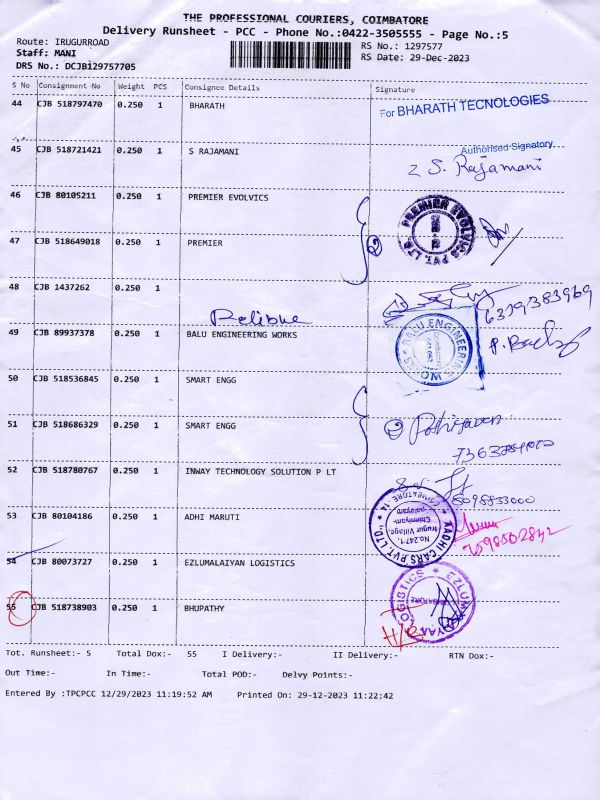 THE PROFESSIONAL COURIERS, COIMBATORE
Delivery Runsheet - PCC - Phone No.:0422-3505555 - Page No.:5
Route: IRUGURROAD
RS No.: 1297577
Staff: MANI
RS Date: 29-Dec-2023
DRS No.: DCJB129757705
S No Consignment No Weight PCS Consignee Details Signature
44 CJB 518797470 0.250 1 BHARATH For BHARATH TECNOLOGIES
Authorised Signatory
45 CJB 518721421 0.250 1 S RAJAMANI S. Rajamani
46 CJB 80105211 0.250 1 PREMIER EVOLVICS PREMIER EVOLVICS PVT. LTD
47 CJB 518649018 0.250 1 PREMIER
48 CJB 1437262 0.250 1
6379383969
49 CJB 89937378 0.250 1 BALU ENGINEERING WORKS BALU ENGINEERING WORKS
50 CJB 518536845 0.250 1 SMART ENGG
51 CJB 518686329 0.250 1 SMART ENGG
52 CJB 518780767 0.250 1 INWAY TECHNOLOGY SOLUTION P LT
53 CJB 80104186 0.250 1 ADHI MARUTI
No.2471, Irugur Village, Chinniyam-palayam
54 CJB 80073727 0.250 1 EZLUMALAIYAN LOGISTICS
55 CJB 518738903 0.250 1 BHUPATHY
Tot. Runsheet:- 5 Total Dox:- 55 I Delivery:- II Delivery:- RTN Dox:-
Out Time:- In Time:- Total POD:- Delvy Points:-
Entered By :TPCPCC 12/29/2023 11:19:52 AM Printed On: 29-12-2023 11:22:42